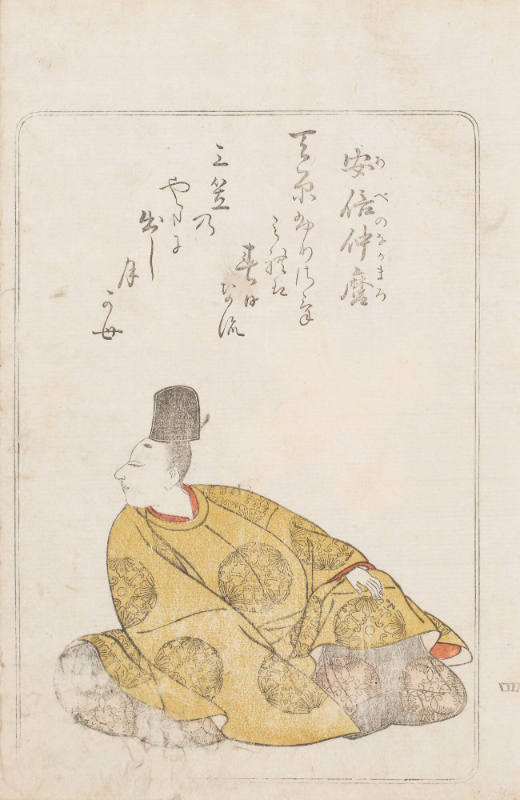 安倍仲麿
あべのなかまろ
天原ふりさけ
みれは
春日なる
三笠乃
やまに
出し
月
かも